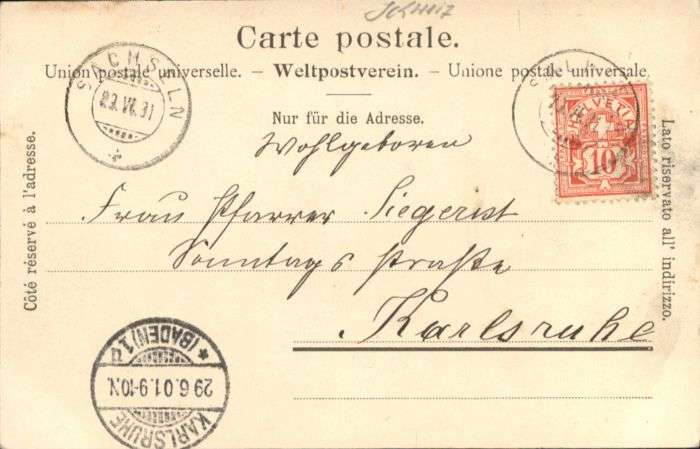 Schweiz
Carte postale.
Union postale universelle. – Weltpostverein. – Unione postale universale.
Nur für die Adresse.
Côté réservé à l'adresse.
Lato riservato all' indirizzo.
SACHSELN
HELVETIA
10
Wohlgeboren
Frau Pfarrer Siegrist
Sonntags straße
Karlsruhe
KARLSRUHE
29.6.01.9-10N.
*(BADEN)1